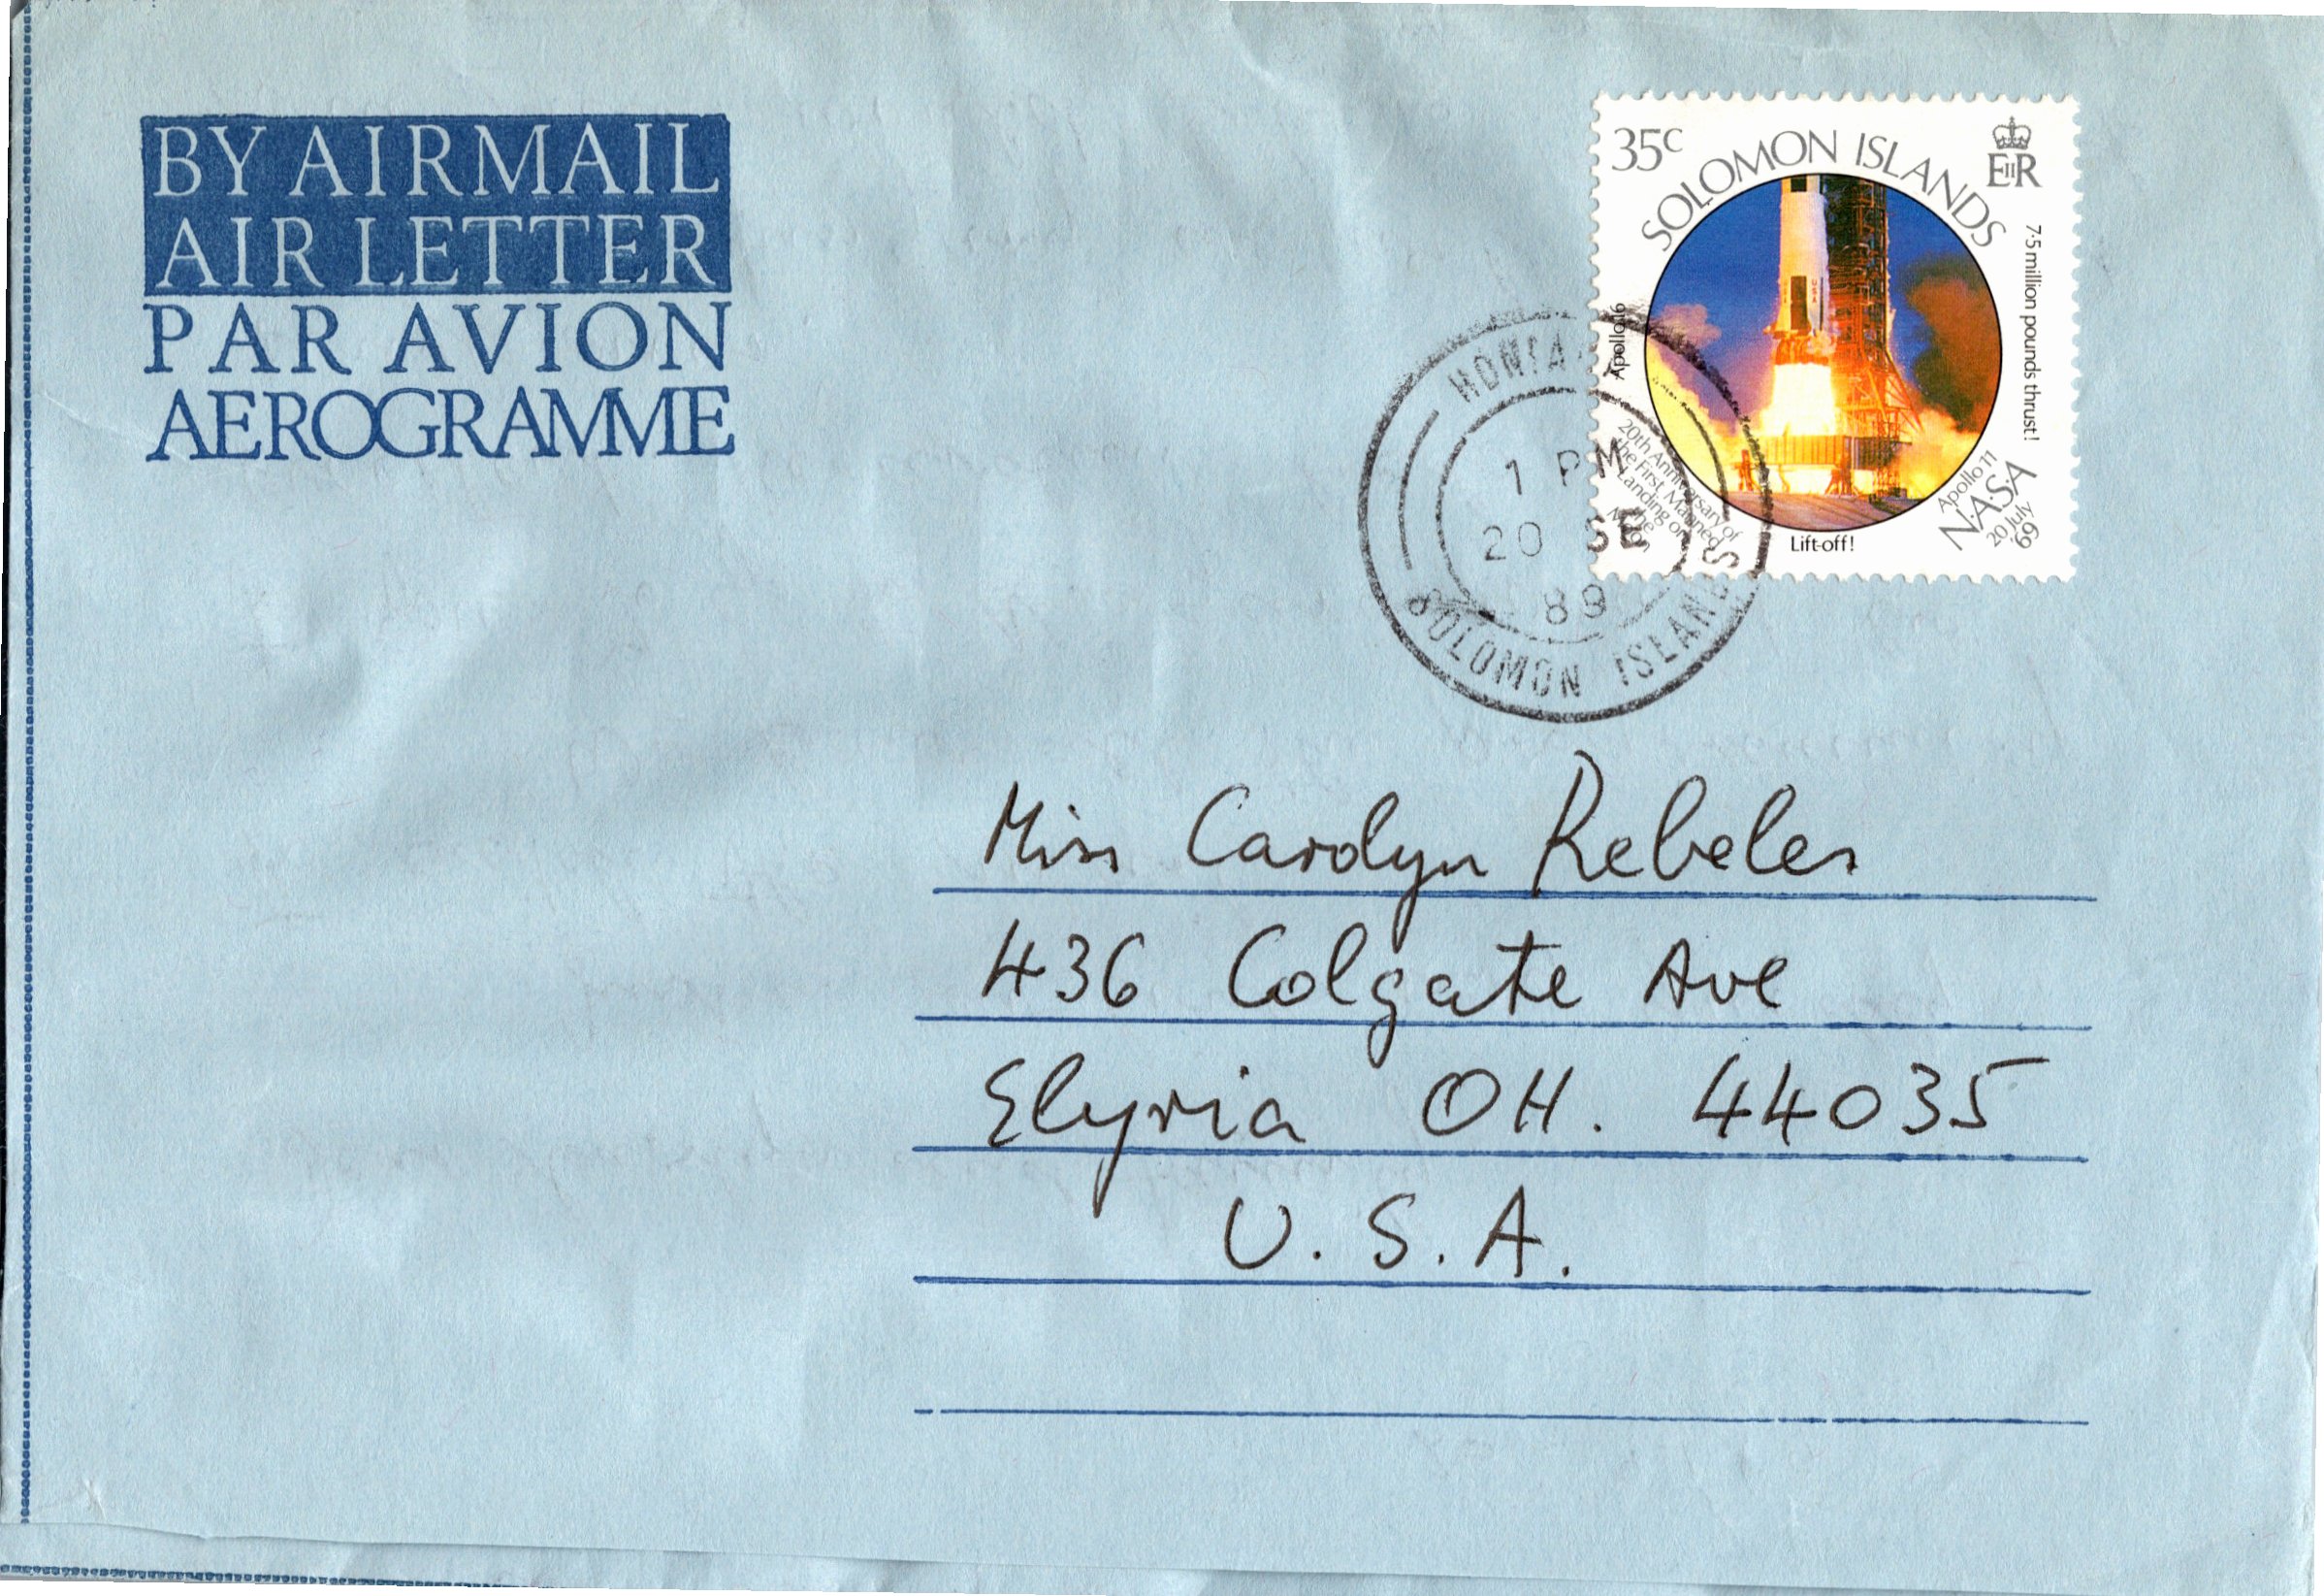 BY AIRMAIL
AIR LETTER
PAR AVION
AEROGRAMME
35c
SOLOMON ISLANDS
EIIR
7·5 million pounds thrust!
Apollo 16
20th Anniversary of
the First Manned
Landing on
Apollo 11
N·A·S·A
20 July
'69
Lift-off!
1 PM
20 SE
89
SOLOMON ISLANDS
Miss Carolyn Rebeles
436 Colgate Ave
Elyria OH. 44035
U.S.A.